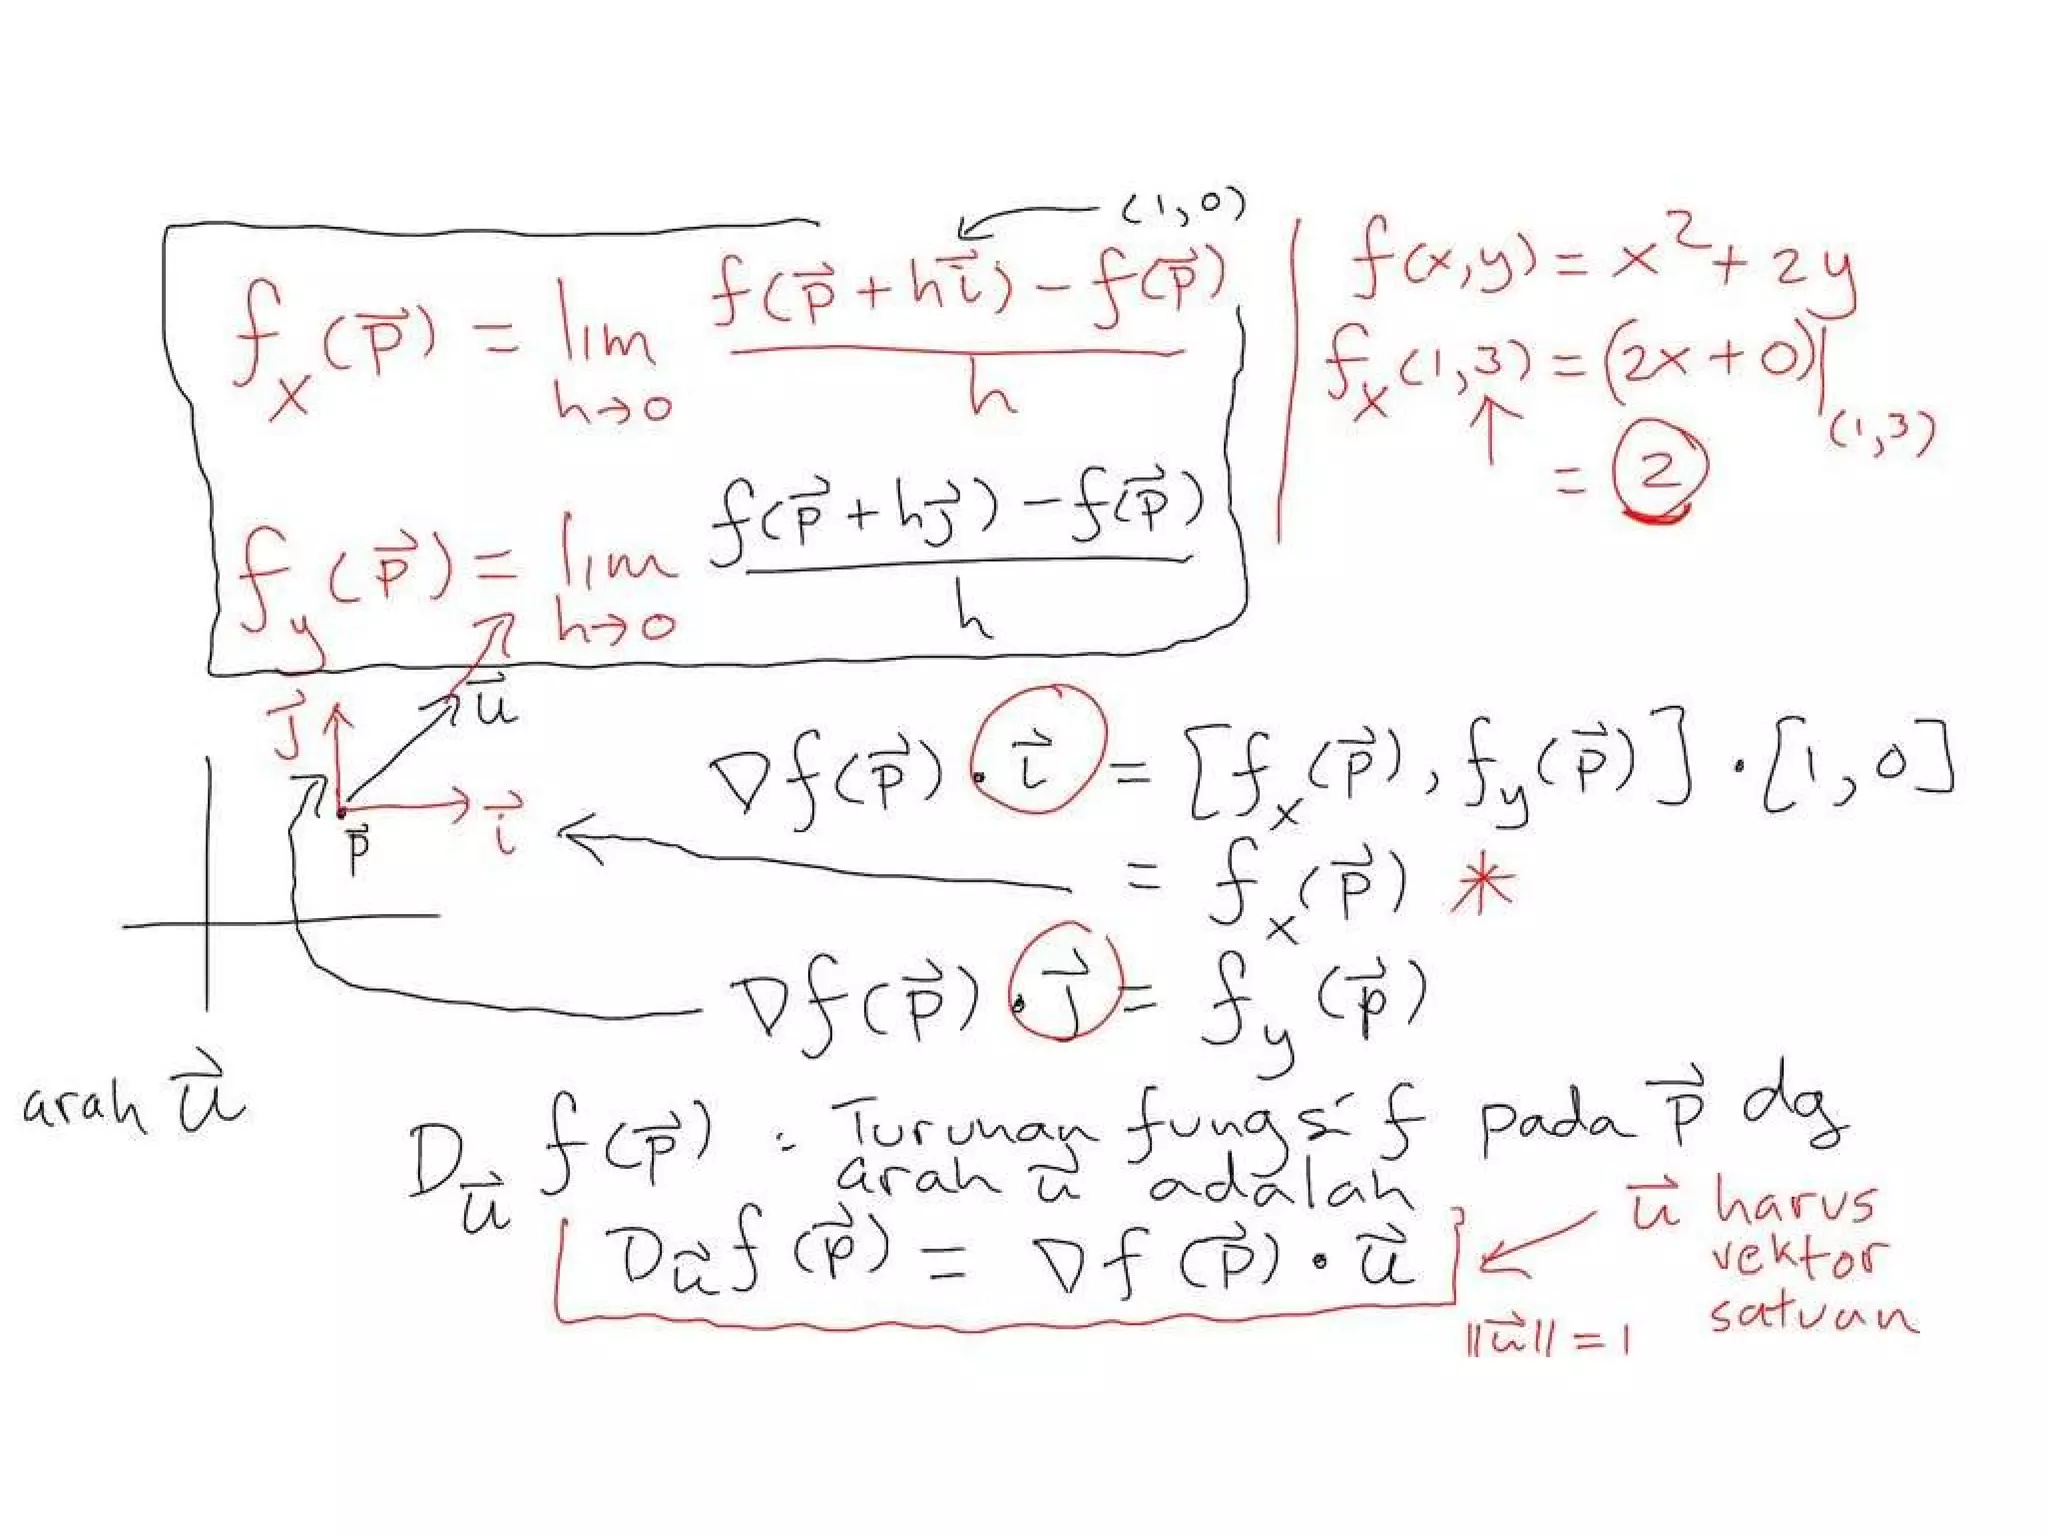 (1,0)
f_x(p⃗) = lim h→0 f(p⃗ + hi⃗) − f(p⃗) / h
f_y(p⃗) = lim h→0 f(p⃗ + hj⃗) − f(p⃗) / h
f(x,y) = x² + 2y
f_x(1,3) = (2x + 0)|(1,3)
= 2
j⃗
u⃗
i⃗
p⃗
∇f(p⃗) · i⃗ = [f_x(p⃗), f_y(p⃗)] · [1, 0]
= f_x(p⃗) *
∇f(p⃗) · j⃗ = f_y(p⃗)
arah u⃗
D_u⃗ f(p⃗) : Turunan fungsi f pada p⃗ dg
arah u⃗ adalah
D_u⃗ f(p⃗) = ∇f(p⃗) · u⃗
u⃗ harus
vektor
satuan
||u⃗|| = 1